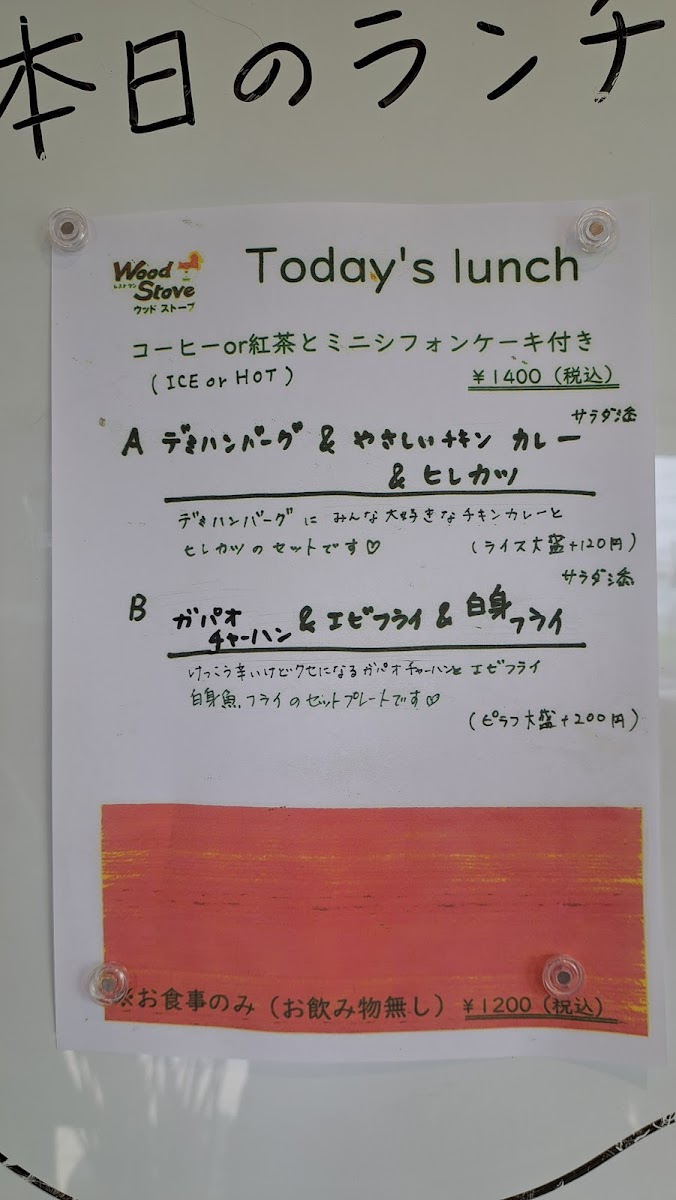 本日のランチ
Wood
レストラン
Stove
ウッド ストーブ
Today's lunch
コーヒーor紅茶とミニシフォンケーキ付き
(ICE or HOT)
¥1400（税込）
サラダ添
A デミハンバーグ & やさしいチキン カレー
& ヒレカツ
デミハンバーグに みんな大好きなチキンカレーと
ヒレカツのセットです♡
(ライス大盛+120円)
サラダ添
B ガパオチャーハン & エビフライ & 白身フライ
けっこう辛いけどクセになるガパオチャーハンと エビフライ
白身魚フライのセットプレートです♡
(ピラフ大盛+200円)
※お食事のみ（お飲み物無し）¥1200（税込）